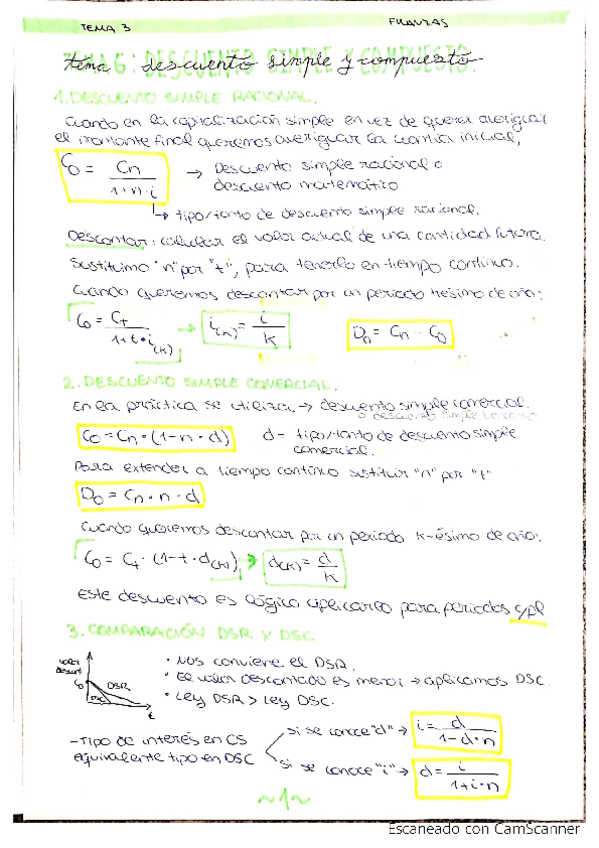 TEMA 3
FINANZAS
tema descuento simple y compuesto
1. DESCUENTO SIMPLE RACIONAL.
cuando en la capitalización simple en vez de querer averiguar
el montante final queremos averiguar la cuantía inicial,
C₀ = Cn / 1+n·i → Descuento simple racional o
descuento matemático
↳ tipo/tanto de descuento simple racional.
Descontar: calcular el valor actual de una cantidad futura.
Sustituimo "n" por "t", para tenerlo en tiempo continuo.
Cuando queremos descontar por un periodo kesimo de año:
C₀ = Ct / 1+t·i(k) → i(k) = i / k
Dn = Cn - C₀
2. DESCUENTO SIMPLE COMERCIAL.
En la práctica se utiliza → descuento simple comercial.
o descuento simple
C₀ = Cn · (1-n·d) d = tipo/tanto de descuento simple
comercial.
Para extender a tiempo continuo sustituir "n" por "t"
D₀ = Cn · n · d
Cuando queremos descontar por un periodo k-ésimo de año:
C₀ = Ct · (1-t·d(k)) → d(k) = d / k
Este descuento es lógico aplicarlo para periodos c/pl
3. COMPARACIÓN DSR Y DSC
valor
descont
C₀
DSR
DSC
t
· Nos conviene el DSR.
· El valor descontado es menor → aplicamos DSC.
· Ley DSR > Ley DSC.
-Tipo de interés en CS
equivalente tipo en DSC
si se conoce "d" → i = d / 1-d·n
si se conoce "i" → d = i / 1+i·n
~1~
Escaneado con CamScanner